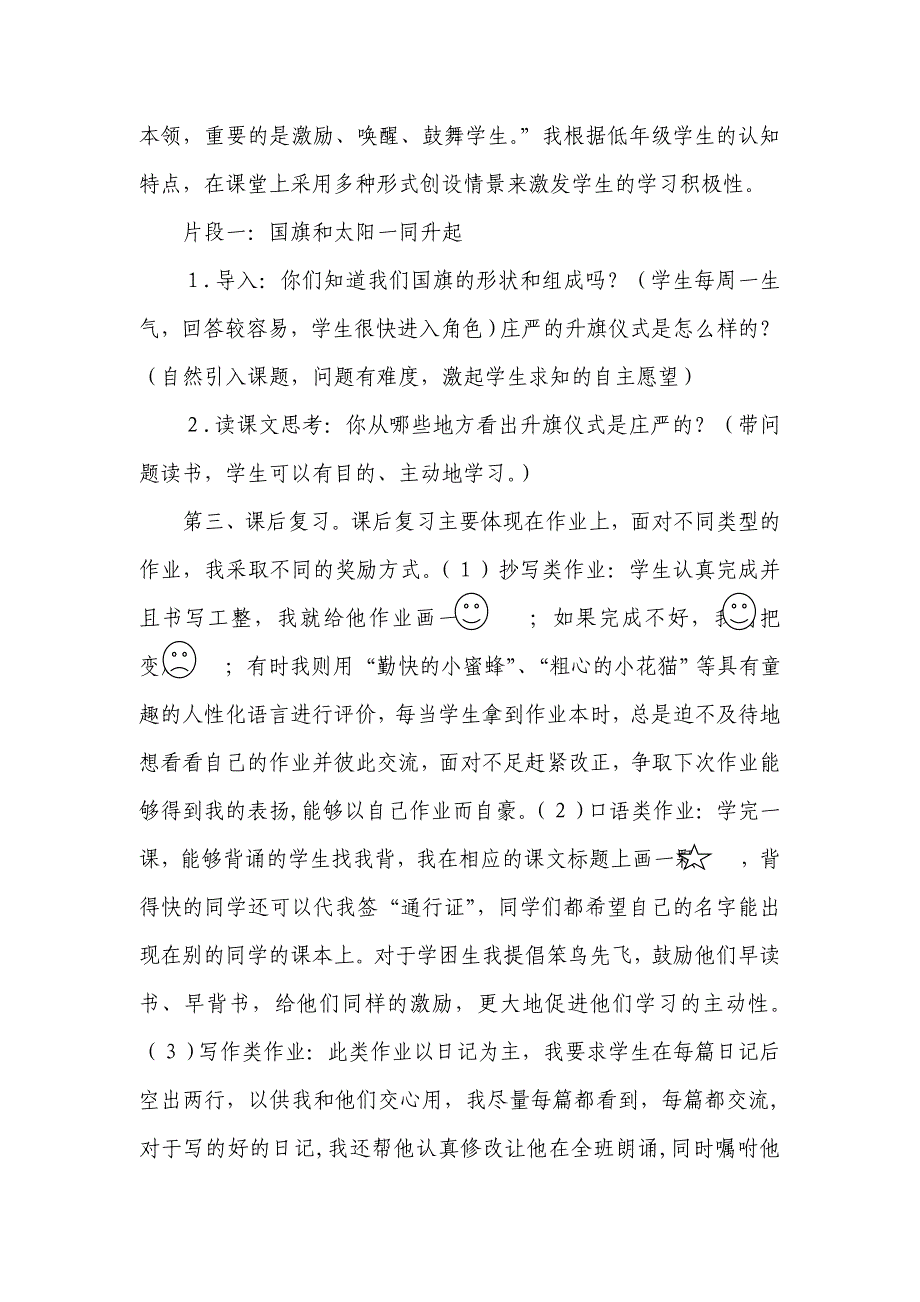 本领，重要的是激励、唤醒、鼓舞学生。”我根据低年级学生的认知
特点，在课堂上采用多种形式创设情景来激发学生的学习积极性。
片段一：国旗和太阳一同升起
１.导入：你们知道我们国旗的形状和组成吗？（学生每周一生
气，回答较容易，学生很快进入角色）庄严的升旗仪式是怎么样的？
（自然引入课题，问题有难度，激起学生求知的自主愿望）
２.读课文思考：你从哪些地方看出升旗仪式是庄严的？（带问
题读书，学生可以有目的、主动地学习。）
第三、课后复习。课后复习主要体现在作业上，面对不同类型的
作业，我采取不同的奖励方式。（１）抄写类作业：学生认真完成并
且书写工整，我就给他作业画一 ；如果完成不好，我 把
变 ；有时我则用“勤快的小蜜蜂”、“粗心的小花猫”等具有童
趣的人性化语言进行评价，每当学生拿到作业本时，总是迫不及待地
想看看自己的作业并彼此交流，面对不足赶紧改正，争取下次作业能
够得到我的表扬,能够以自己作业而自豪。（２）口语类作业：学完一
课，能够背诵的学生找我背，我在相应的课文标题上画一 ，背
得快的同学还可以代我签“通行证”，同学们都希望自己的名字能出
现在别的同学的课本上。对于学困生我提倡笨鸟先飞，鼓励他们早读
书、早背书，给他们同样的激励，更大地促进他们学习的主动性。
（３）写作类作业：此类作业以日记为主，我要求学生在每篇日记后
空出两行，以供我和他们交心用，我尽量每篇都看到，每篇都交流,
对于写的好的日记,我还帮他认真修改让他在全班朗诵,同时嘱咐他